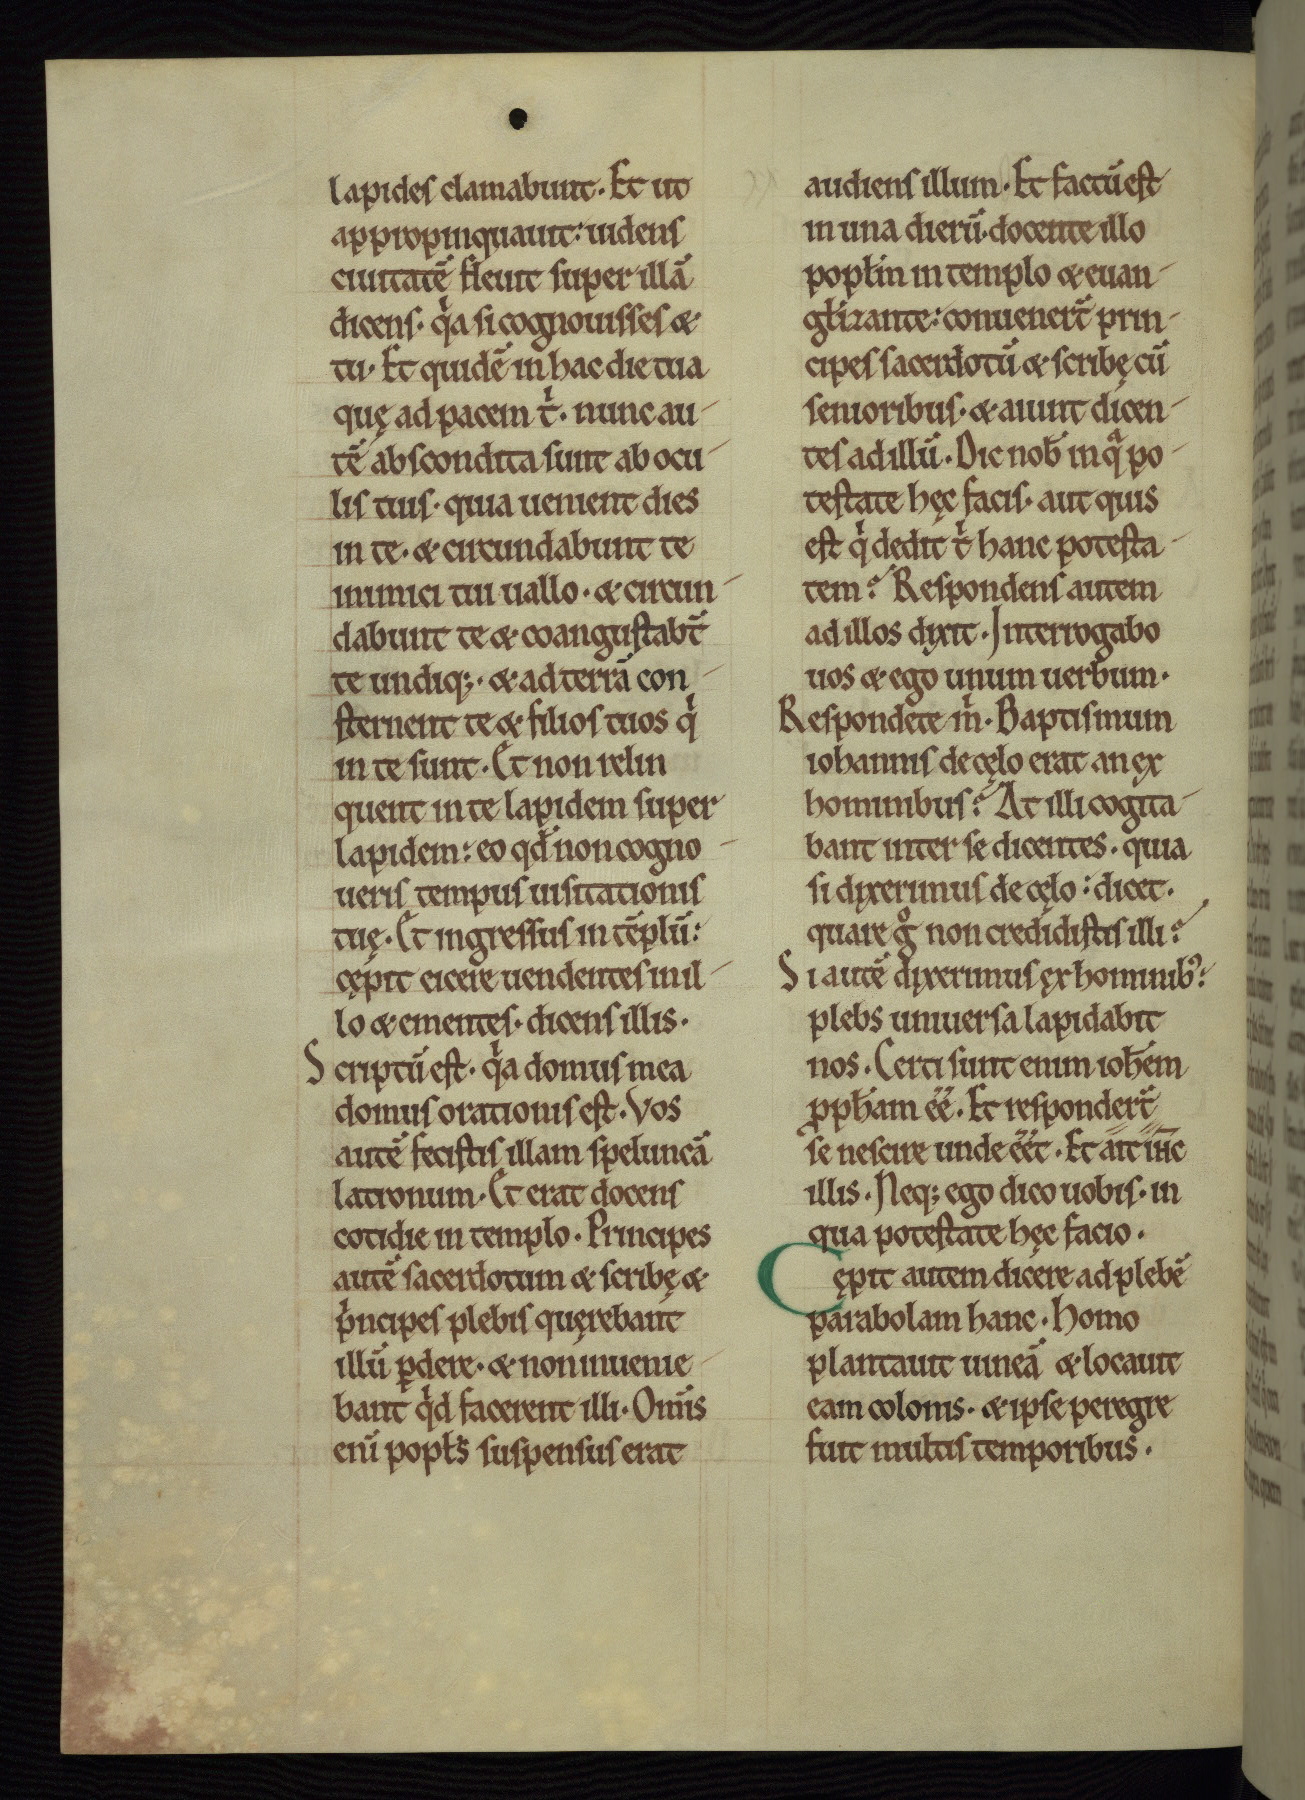 lapides clamabunt. Et ut
appropinquauit: uidens
ciuitatē fleuit super illā
dicens. qͥa si cognouisses &
tu. Et quidē in hac die tua
quę ad pacem tͥ. nunc au-
tē abscondita sunt ab ocu-
lis tuis. quia uenient dies
in te. & circundabunt te
inimici tui uallo. & circun-
dabunt te & coangustabt̄
te undiq;. & ad terrā con-
sternent te & filios tuos qͥ
in te sunt. Et non relin
quent in te lapidem super
lapidem: eo qđ non cogno-
ueris tempus uisitationis
tuę. Et ingressus in tēplū:
cępit eicere uendentes in il-
lo & ementes. dicens illis.
Scriptū est. qͥa domus mea
domus orationis est. Vos
autē fecistis illam speluncā
latronum. Et erat docens
cotidie in templo. Principes
autē sacerdotum & scribę &
pͥncipes plebis quęrebant
illū ꝑdere. & non inuenie-
bant qͥd facerent illi. Om̄is
eni̅ popl̄s suspensus erat
audiens illum. Et factū est
in una dierū. docente illo
popl̄m in templo & euan-
gl̄izante: conuenert̄ prin-
cipes sacerdotū & scribę cū
senioribus. & aiunt dicen-
tes ad illū. Dic nob̄ in qͣ po-
testate hęc facis. aut quis
est qͥ dedit tͥ hanc potesta-
tem? Respondens autem
ad illos dixit. Interrogabo
uos & ego unum uerbum.
Respondete mͥ. Baptismum
iohannis de cęlo erat an ex
hominibus? At illi cogita-
bant inter se dicentes. quia
si dixerimus de cęlo: dicet.
quare gͦ non credidistis illi?
Si autē dixerimus ex hominibꝰ:
plebs uniuersa lapidabit
nos. Certi sunt enim ioh̄em
ꝓph̄am ēē. Et respondert̄
se nescire unde ēēt. Et ait ih̄c
illis. Neq; ego dico uobis. in
qua potestate hęc facio.
Cępit autem dicere ad plebē
parabolam hanc. Homo
plantauit uineā & locauit
eam colonis. & ipse peregre
fuit multis temporibus.